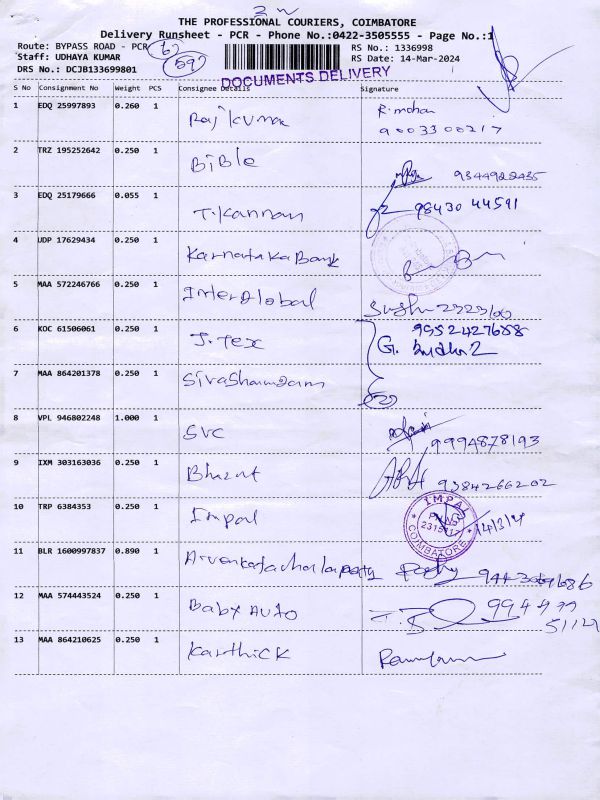 THE PROFESSIONAL COURIERS, COIMBATORE
Delivery Runsheet - PCR - Phone No.:0422-3505555 - Page No.:1
Route: BYPASS ROAD - PCR
Staff: UDHAYA KUMAR
DRS No.: DCJB133699801
62
592
RS No.: 1336998
RS Date: 14-Mar-2024
DOCUMENTS DELIVERY
S No Consignment No Weight PCS Consignee Details Signature
1 EDQ 25997893 0.260 1 Rajkumar R.mohan
9003300217
2 TRZ 195252642 0.250 1 BiBle 9344922435
3 EDQ 25179666 0.055 1 T.Kannan 98430 44591
4 UDP 17629434 0.250 1 Karnataka Bank
5 MAA 572246766 0.250 1 InterGlobal
6 KOC 61506061 0.250 1 J.Tex 9952427688
G.
7 MAA 864201378 0.250 1
8 VPL 946802248 1.000 1 SVC 9994878193
9 IXM 303163036 0.250 1 Bharat 9384266202
10 TRP 6384353 0.250 1 Impal IMPAL COIMBATORE 14/3/24
11 BLR 1600997837 0.890 1
12 MAA 574443524 0.250 1 Baby Auto
13 MAA 864210625 0.250 1 Karthick